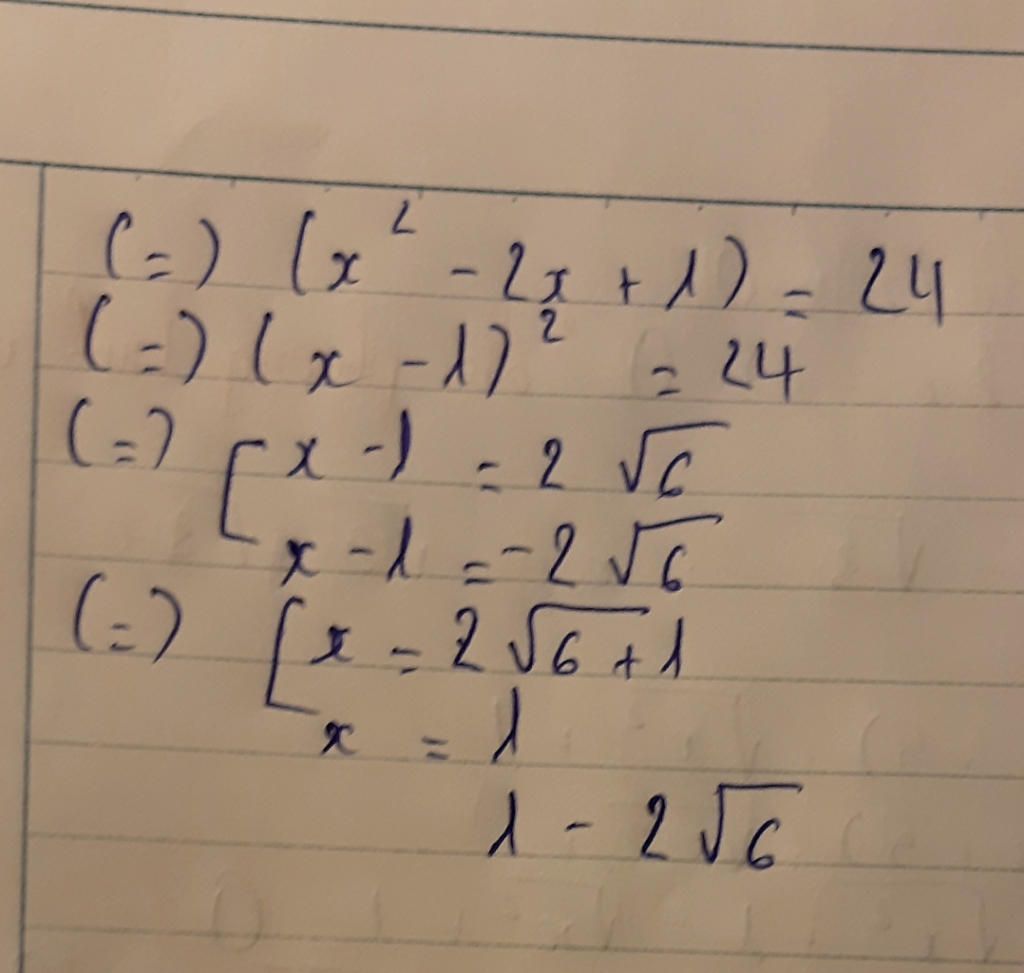 (=) (x² - 2x + 1) = 24
(=) (x - 1)² = 24
(=) [ x - 1 = 2 √6
x - 1 = -2 √6
(=) [ x = 2 √6 + 1
x = 1
1 - 2 √6